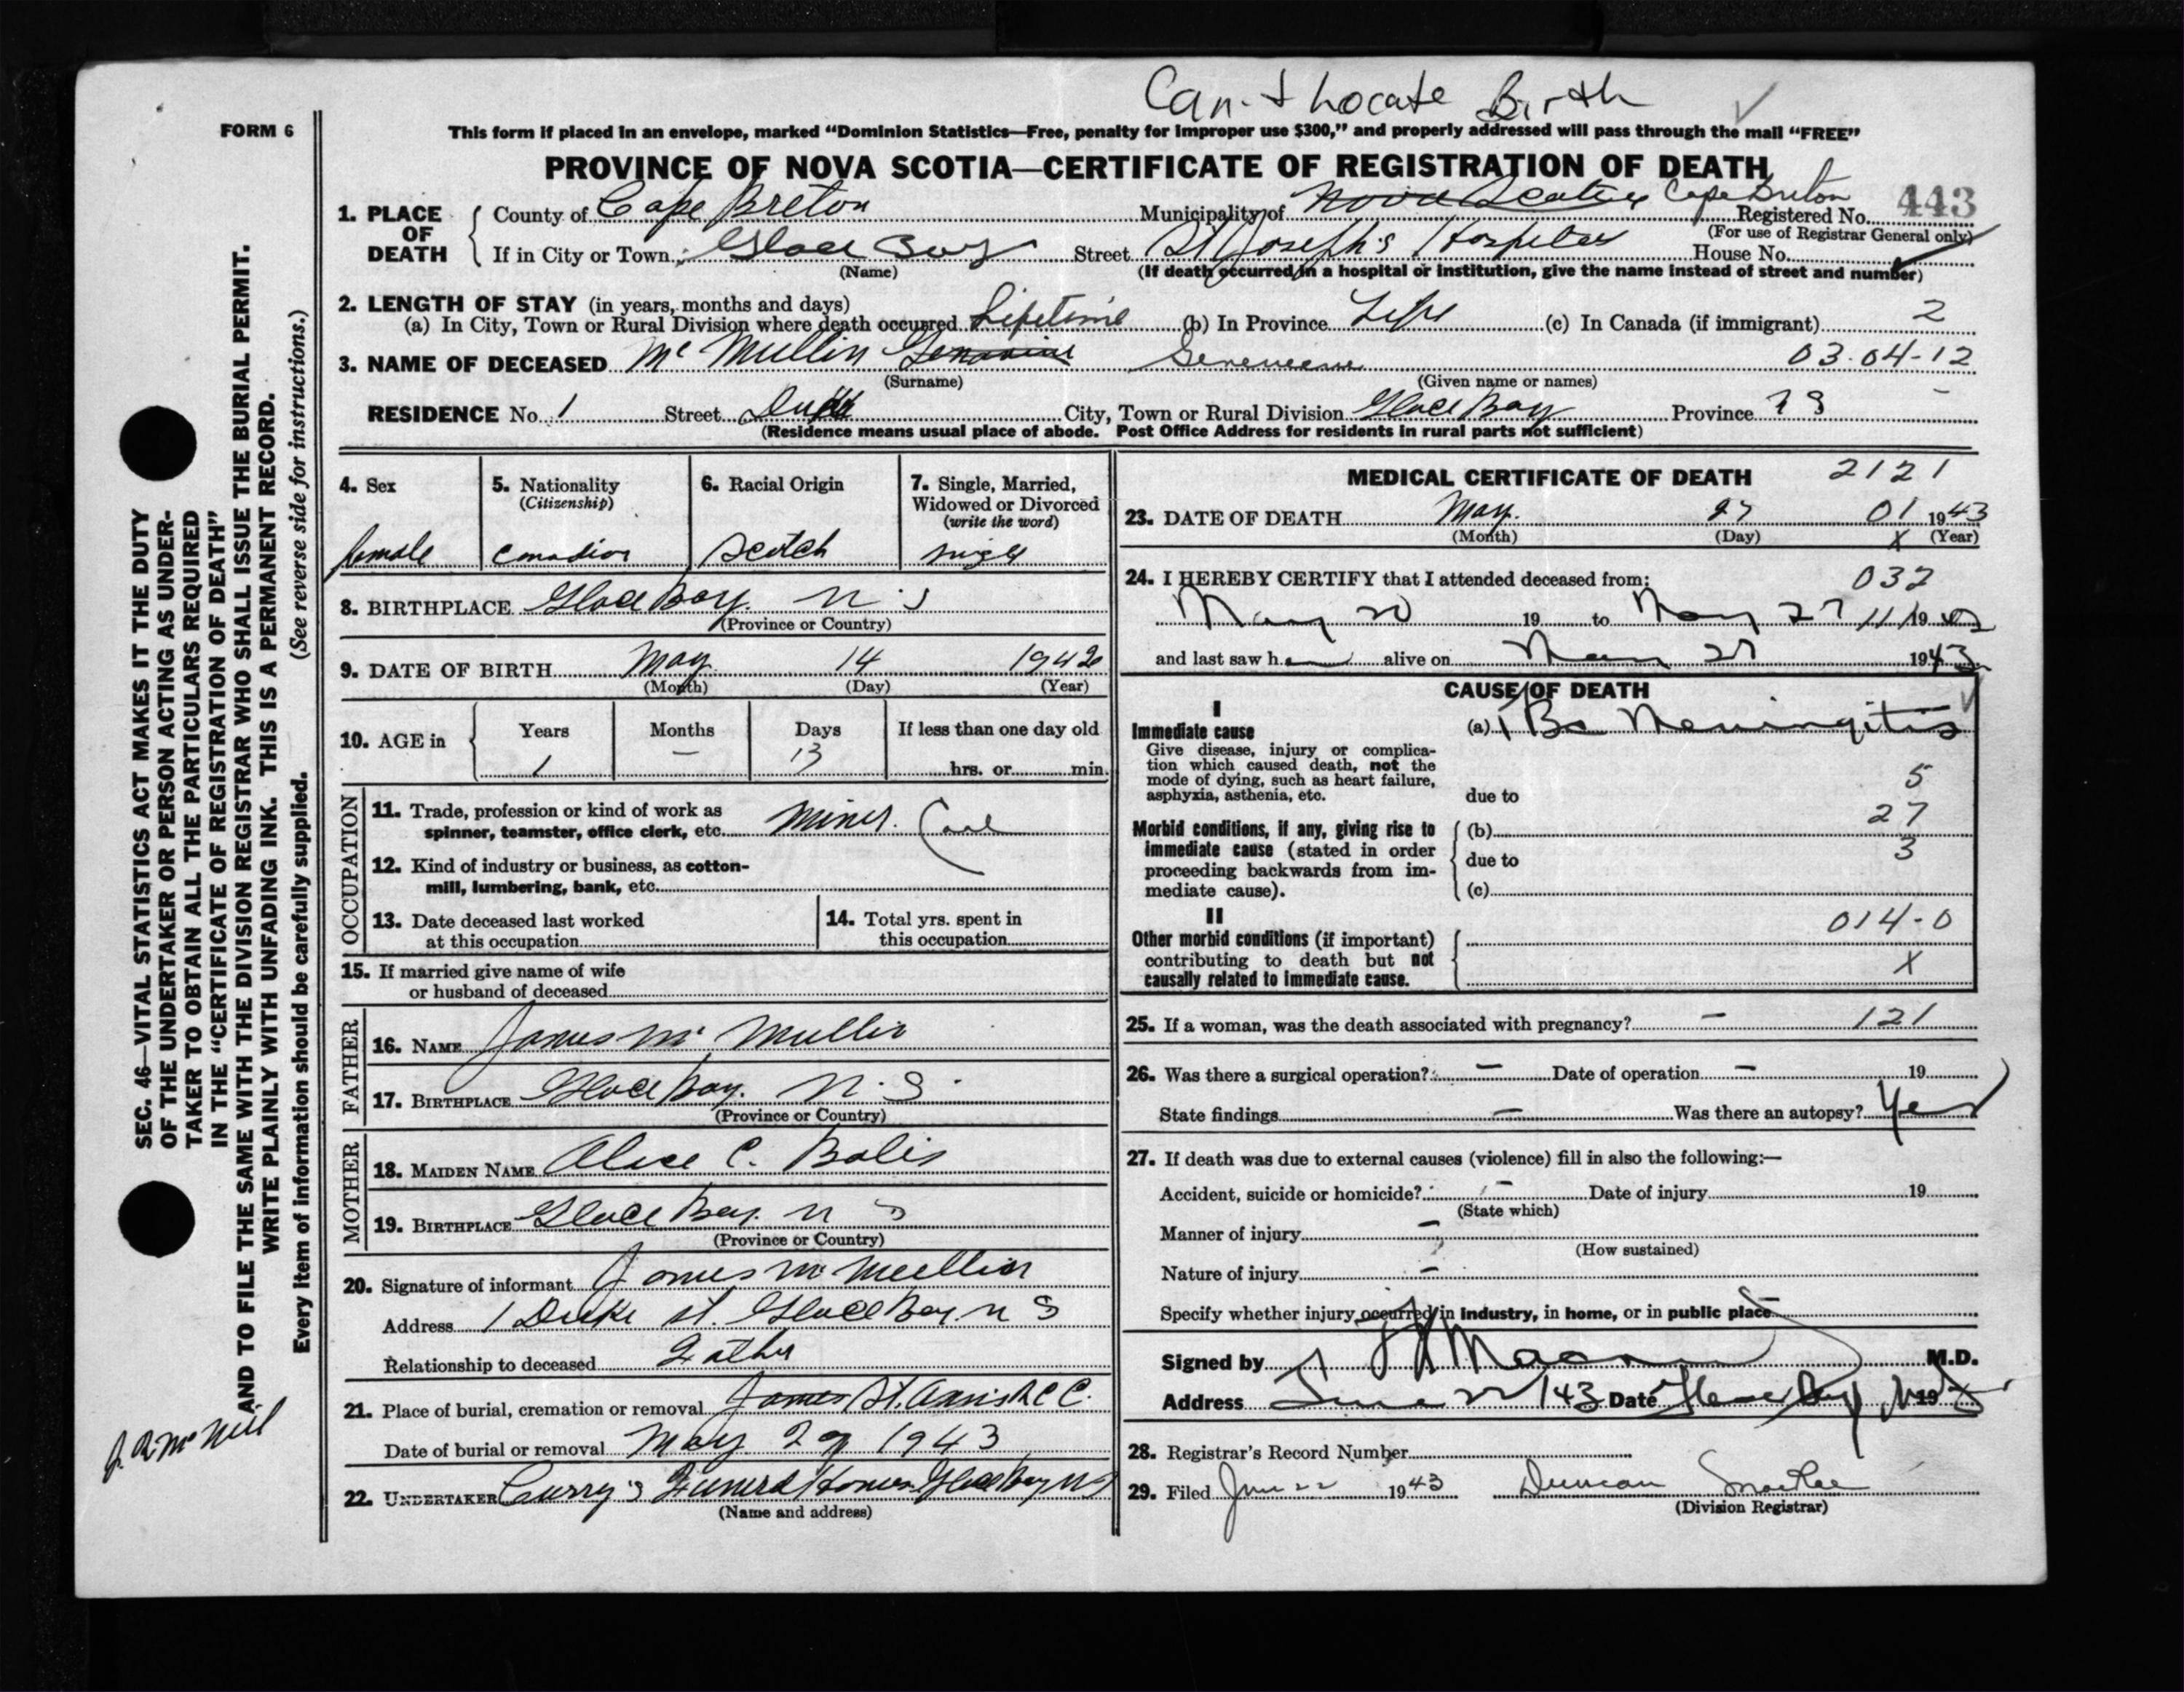 Can't Locate Birth
FORM 6
This form if placed in an envelope, marked "Dominion Statistics—Free, penalty for improper use $300," and properly addressed will pass through the mail "FREE"
PROVINCE OF NOVA SCOTIA—CERTIFICATE OF REGISTRATION OF DEATH
1. PLACE OF DEATH County of Cape Breton Municipality of Nova Scotia Cape Breton Registered No. 443
(For use of Registrar General only)
If in City or Town Glace Bay Street St Joseph's Hospital House No.
(Name) (If death occurred in a hospital or institution, give the name instead of street and number)
2. LENGTH OF STAY (in years, months and days)
(a) In City, Town or Rural Division where death occurred Lifetime (b) In Province Life (c) In Canada (if immigrant) 2
3. NAME OF DECEASED Mc Mullin 03.04-12
(Surname) (Given name or names)
RESIDENCE No. 1 Street Duke City, Town or Rural Division Glace Bay Province
(Residence means usual place of abode. Post Office Address for residents in rural parts not sufficient)
4. Sex 5. Nationality (Citizenship) 6. Racial Origin 7. Single, Married, Widowed or Divorced (write the word)
female Canadian Scotch single
8. BIRTHPLACE Glace Bay. N.S
(Province or Country)
9. DATE OF BIRTH May 14 1942
(Month) (Day) (Year)
10. AGE in Years Months Days If less than one day old
1 — 13 hrs. or min.
OCCUPATION
11. Trade, profession or kind of work as
spinner, teamster, office clerk, etc. Miner. Coal
12. Kind of industry or business, as cotton-
mill, lumbering, bank, etc.
13. Date deceased last worked
at this occupation
14. Total yrs. spent in
this occupation
15. If married give name of wife
or husband of deceased
FATHER
16. NAME James Mc Mullin
17. BIRTHPLACE Glace Bay. N.S.
(Province or Country)
MOTHER
18. MAIDEN NAME Alice C.
19. BIRTHPLACE Glace Bay. N S
(Province or Country)
20. Signature of informant James Mc Mullin
Address 1 Duke st. Glace Bay. N S
Relationship to deceased Father
21. Place of burial, cremation or removal James St. Anns R C C.
Date of burial or removal May 29 1943
22. UNDERTAKER Curry's Funeral Home Glace Bay NS
(Name and address)
MEDICAL CERTIFICATE OF DEATH 2121
23. DATE OF DEATH May. 27 01 1943
(Month) (Day) X (Year)
24. I HEREBY CERTIFY that I attended deceased from: 032
May 20 19 to May 27 1943
and last saw her alive on May 27 1943
CAUSE OF DEATH
I
Immediate cause
Give disease, injury or complica-
tion which caused death, not the
mode of dying, such as heart failure,
asphyxia, asthenia, etc.
(a) Meningitis
5
due to
27
Morbid conditions, if any, giving rise to
immediate cause (stated in order
proceeding backwards from im-
mediate cause).
(b)
due to 3
(c)
II
Other morbid conditions (if important)
contributing to death but not
causally related to immediate cause.
014-0
X
25. If a woman, was the death associated with pregnancy? — 121
26. Was there a surgical operation? — Date of operation — 19
State findings — Was there an autopsy? Yes
27. If death was due to external causes (violence) fill in also the following:—
Accident, suicide or homicide? — Date of injury 19
(State which)
Manner of injury —
(How sustained)
Nature of injury —
Specify whether injury occurred in industry, in home, or in public place
Signed by M.D.
Address June 22/43 Date Glace Bay N.S 19
28. Registrar's Record Number
29. Filed June 22 1943 Duncan MacRae
(Division Registrar)
SEC. 46—VITAL STATISTICS ACT MAKES IT THE DUTY
OF THE UNDERTAKER OR PERSON ACTING AS UNDER-
TAKER TO OBTAIN ALL THE PARTICULARS REQUIRED
IN THE "CERTIFICATE OF REGISTRATION OF DEATH"
AND TO FILE THE SAME WITH THE DIVISION REGISTRAR WHO SHALL ISSUE THE BURIAL PERMIT.
WRITE PLAINLY WITH UNFADING INK. THIS IS A PERMANENT RECORD.
Every item of information should be carefully supplied. (See reverse side for instructions.)
McNeil